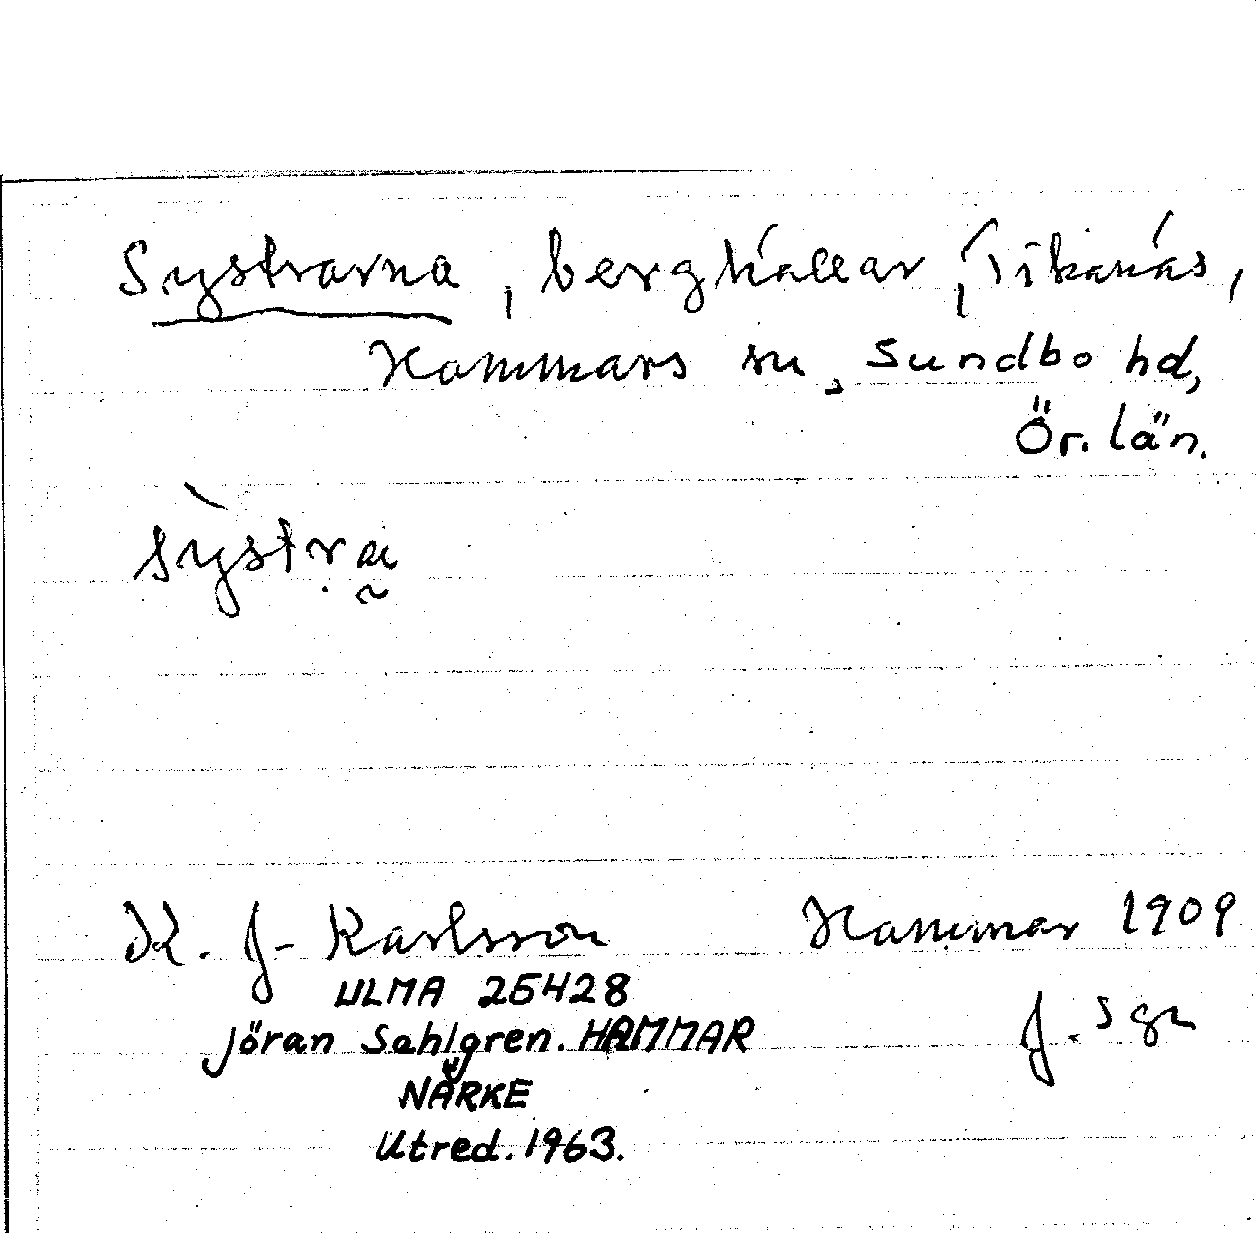 Systrarna, berghällar, Sikanäs,
Hammars sn, Sundbo hd,
Ör. län.
systra
K. J. Karlsson Hammar 1909
ULMA 25428 J. Sgn
Jöran Sahlgren. HAMMAR
NÄRKE
Utred. 1963.